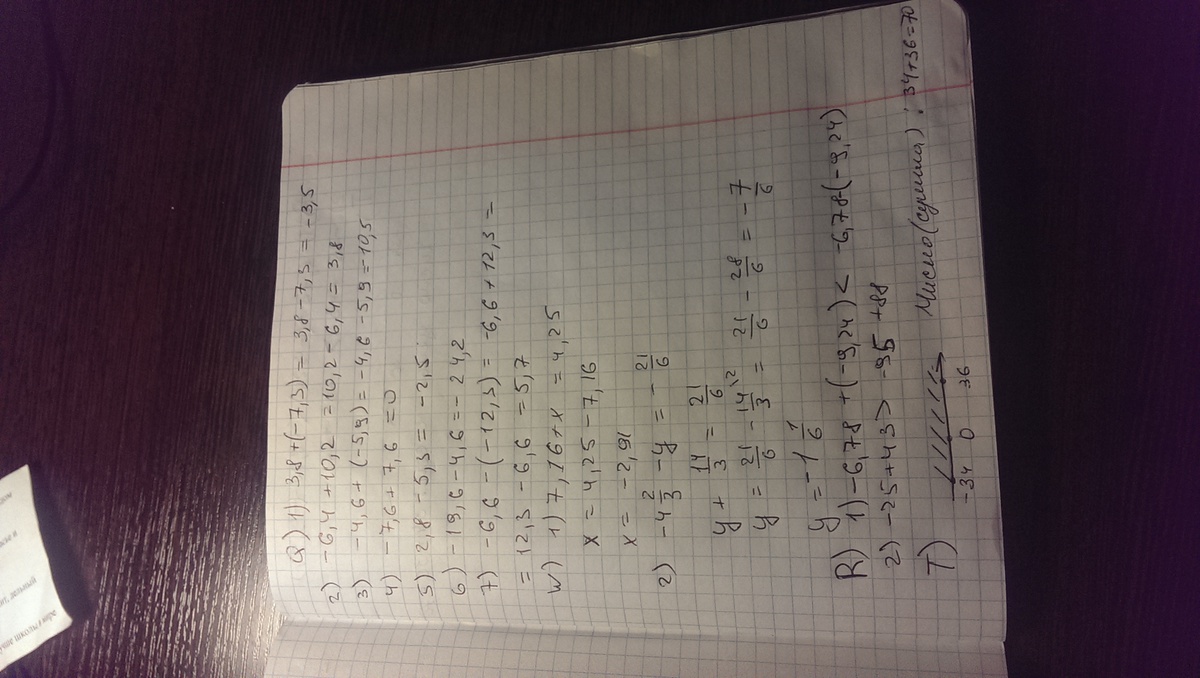 Q) 1) 3,8+(-7,3) = 3,8-7,3 = -3,5
2) -6,4+10,2 =10,2-6,4=3,8
3) -4,6+(-5,9)=-4,6-5,9=10,5
4) -7,6+7,6=0
5) 2,8-5,3=-2,5
6) -19,6-4,6=-24,2
7) -6,6-(-12,3)=-6,6+12,3=
=12,3-6,6=5,7
W) 1) 7,16+x=4,25
x=4,25-7,16
x=-2,91
2) -4 2/3 -y=- 21/6
y+ 14/3 = 21/6
y= 21/6 - 14\2/3 = 21/6 - 28/6 = - 7/6
y=-1 1/6
R) 1) -6,78+(-9,24) < -6,78-(-9,24)
2) -25+43 > -95+88
T) Число(сумма): 34+36=70
-34 0 36